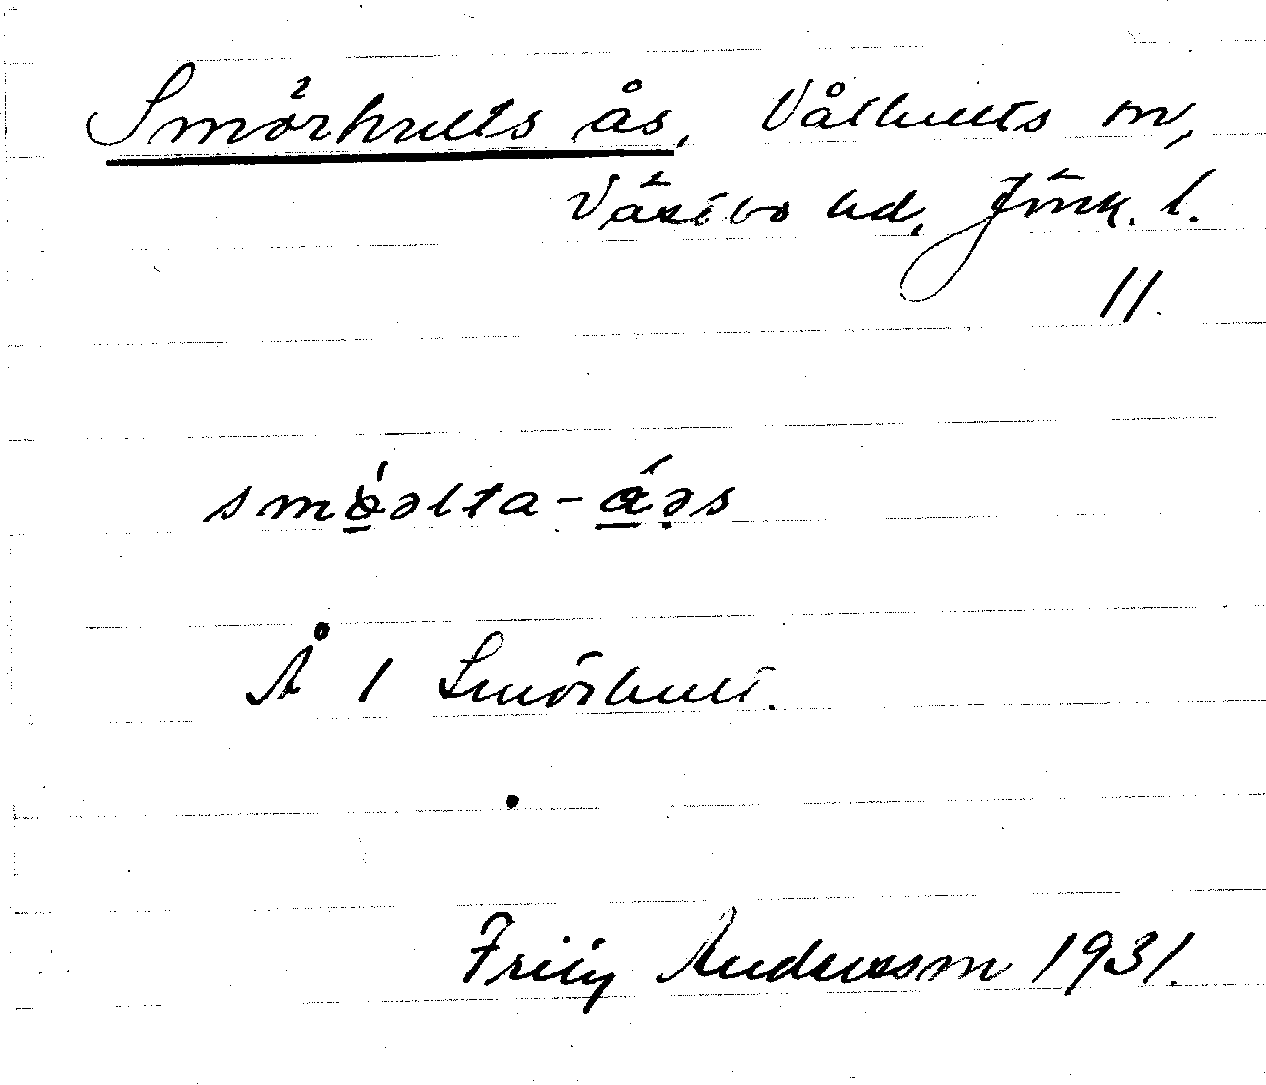 Smörhults ås, Våthults sn,
Västbo hd, Jönk. l.
11.
smö́əlta-ā́əs
Å i Smörhult.
Frity Andersson 1931.